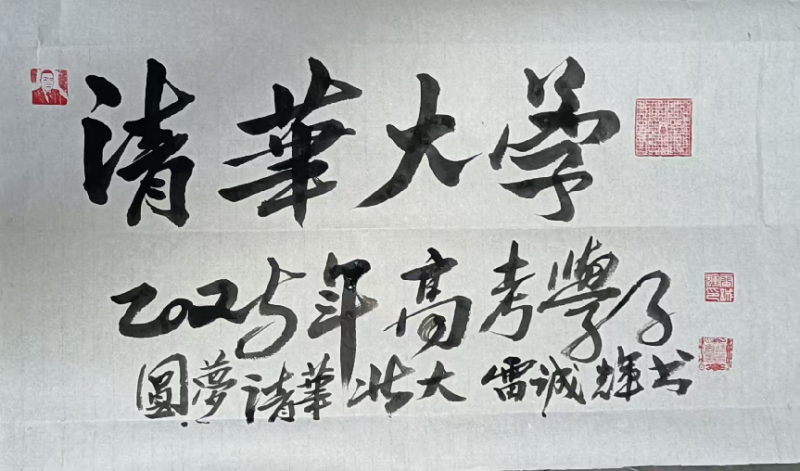 清華大学
2025年高考學子
圆夢清華北大 雷诚輝书